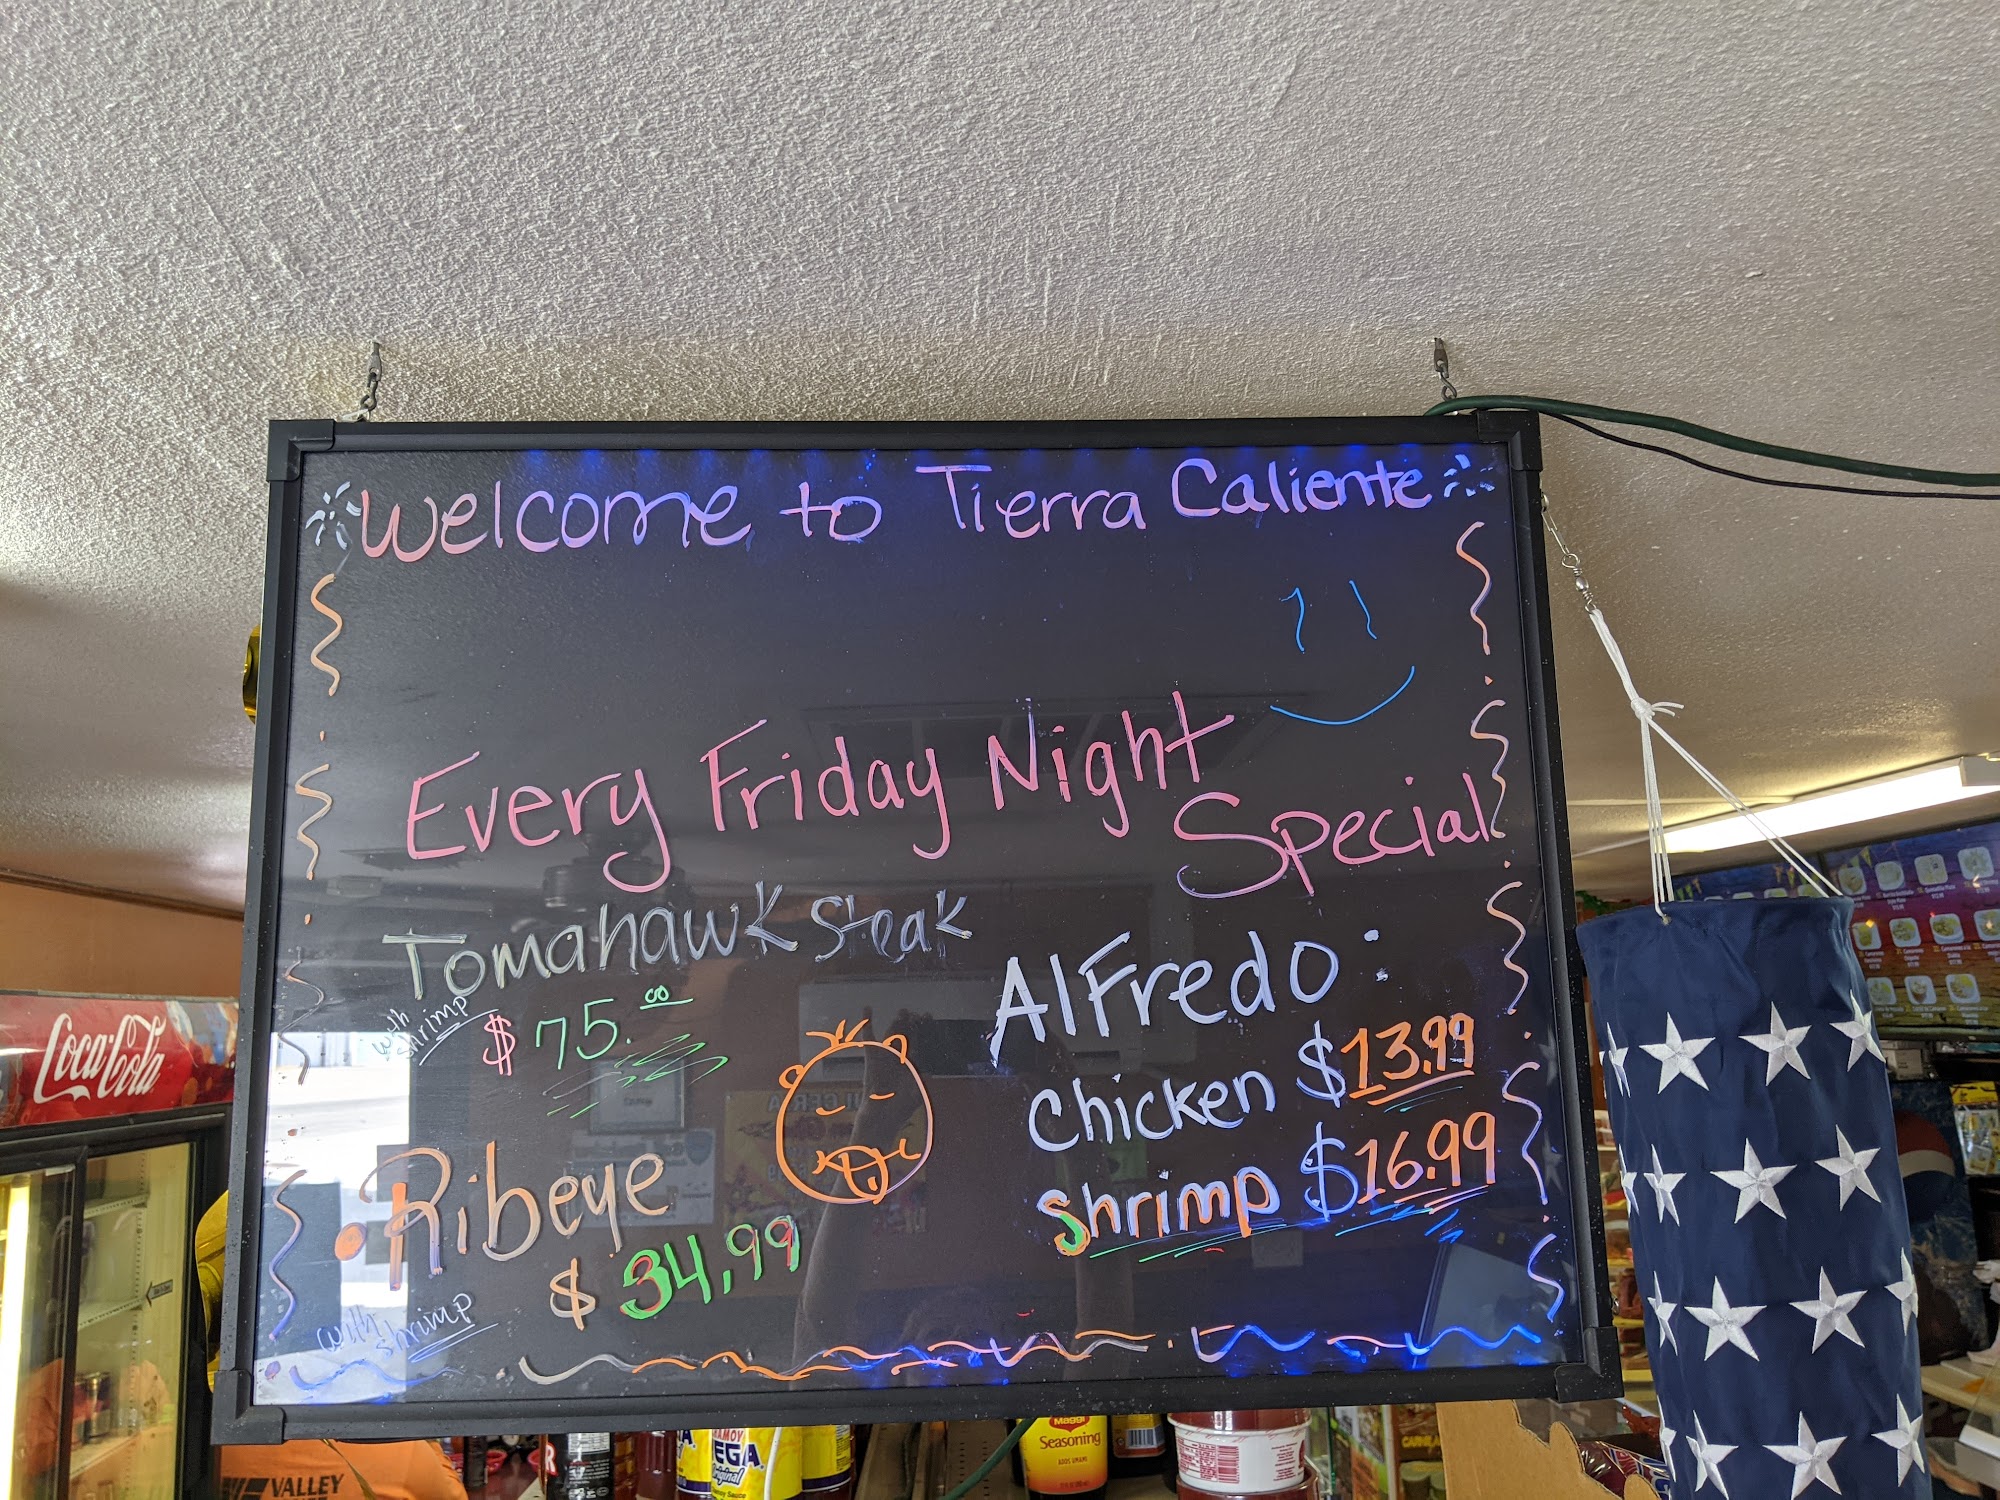 Welcome to Tierra Caliente
Every Friday Night
Special
Tomahawk Steak
with
shrimp
$75.00
Ribeye
$34,99
with
shrimp
AlFredo:
Chicken $13.99
Shrimp $16.99
Coca-Cola
VALLEY
MEGA
Original
Maggi
Seasoning